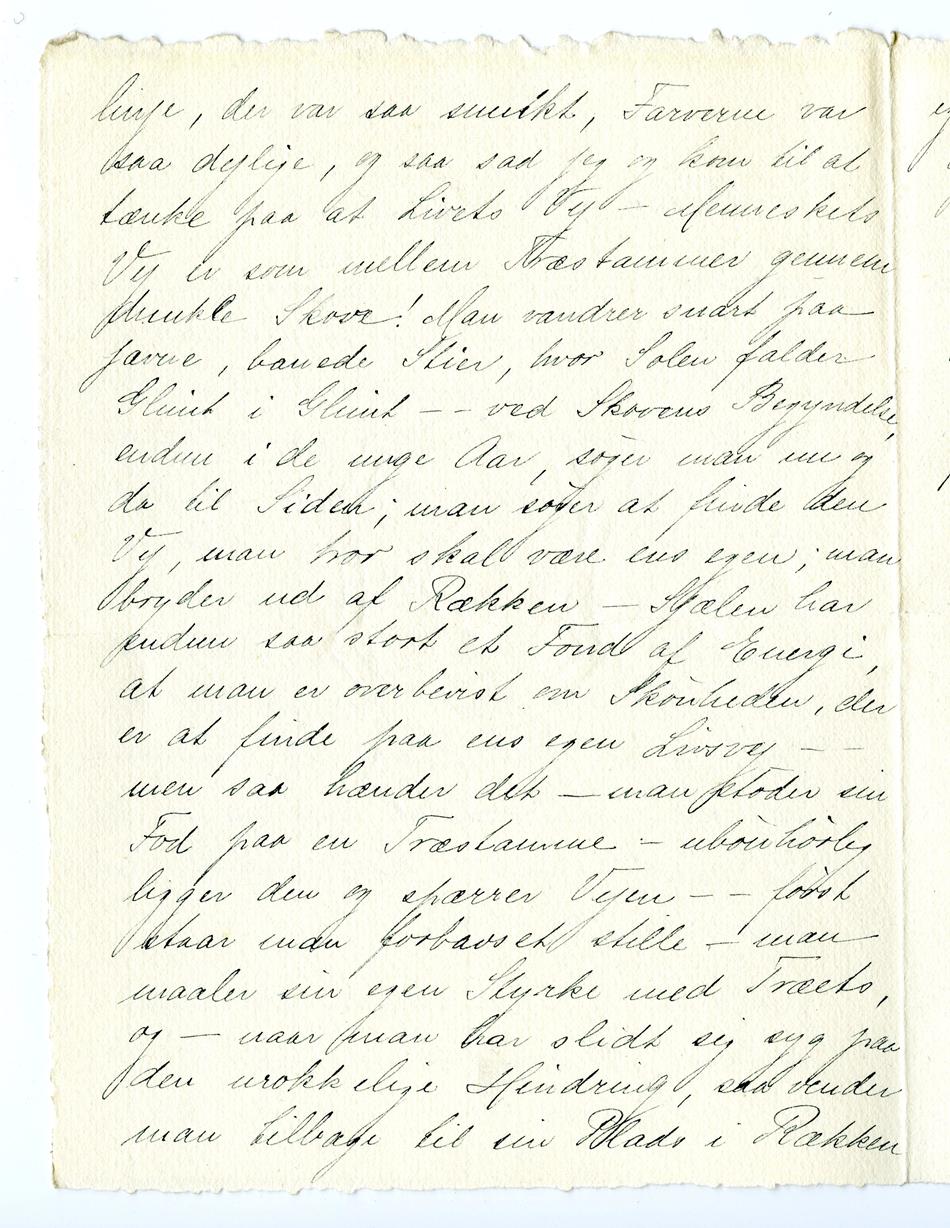 linje, der var saa smukt, Farverne var
saa dejlige, og saa sad jeg og kom til at
tænke paa at Livets Vej – Menneskets
Vej er som mellem Træstammer gennem
dunkle Skove! Man vandrer snart paa
jævne, banede Stier, hvor Solen falder
Glimt i Glimt – – ved Skovens Begyndelse,
endnu i de unge Aar, søger man nu og
da til Siden; man søger at finde den
Vej, man tror skal være ens egen; man
bryder ud af Rækken – Sjælen har
endnu saa stort et Fond af Energi,
at man er overbevist om Skönheden, der
er at finde paa ens egen Livsvej – –
men saa hænder det – man støder sin
Fod paa en Træstamme – ubönhörlig
ligger den og spærrer Vejen – – först
staar man forbavset stille – man
maaler sin egen Styrke med Træets,
og – naar man har slidt sig syg paa
den urokkelige Hindring, saa vender
man tilbage til sin Plads i Rækken